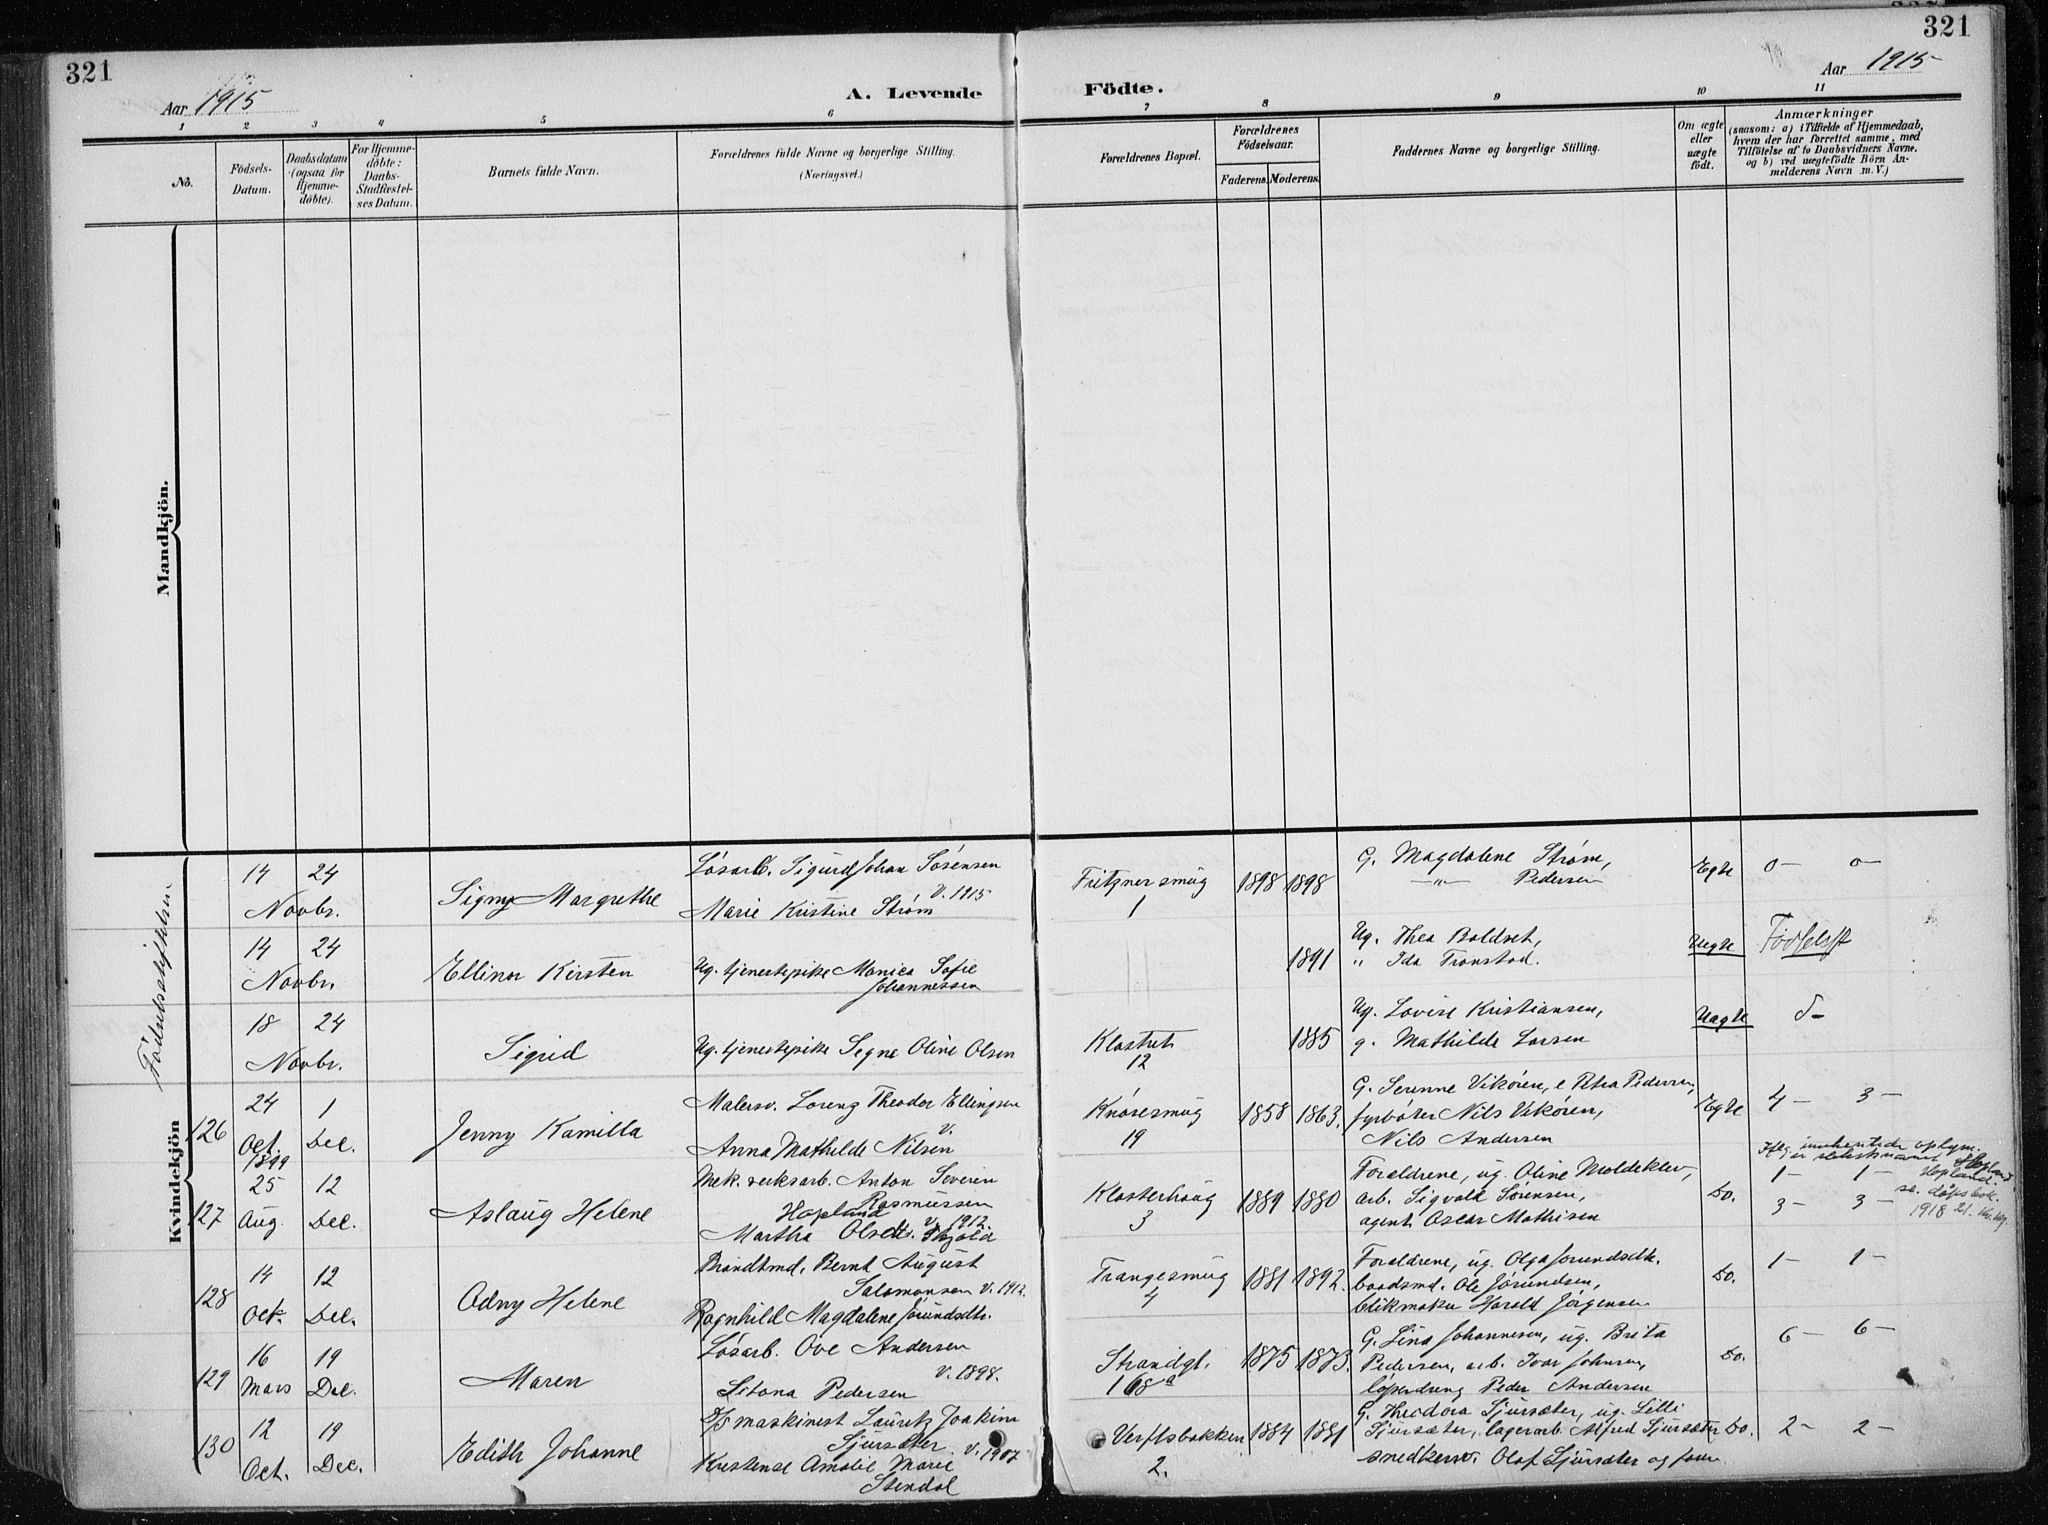 321
321
Aar 1915
A. Levende Födte.
Aar 1915
1 2 3 4 5 6 7 8 9 10 11
No.
Födsels-Datum.
Daabsdatum (ogsaa for Hjemme-döbte).
For Hjemme-döbte: Daabs-Stadfæstel-ses Datum.
Barnets fulde Navn.
Forældrenes fulde Navne og borgerlige Stilling.
(Næringsvei.)
Forældrenes Bopæl.
Forældrenes Födselsaar.
Faderens. Moderens.
Faddernes Navne og borgerlige Stilling.
Om ægte eller uægte födt.
Anmærkninger
(saasom: a) i Tilfælde af Hjemmedaab,
hvem der har forrettet samme, med
Tilföielse af to Daabsvidners Navne.
og b) ved uægtefödte Börn An-
melderens Navn m. V.)
Mandkjön.
Kvindekjön
Fødselsstiftelsen
14 24 Novbr.
Signy Margrethe
Løsarb. Sigurd Johan Sørensen
V. 1915
Marie Kristine Strøm
Fritznersmug 1
1898 1898
G. Magdalene Strøm,
—"— Pedersen
Egte
0— 0—
14 24 Novbr.
Ellinor Kirsten
Ug. tjenestepike Monica Sofie
Johannessen
1891
Ug. Thea Boldvet,
" Ida Tronstad.
Uegte
Fødselsst
18 24 Novbr.
Sigrid
Ug. tjenestepike Segne Oline Olsen
Klostret 12
1885
Ug. Lovise Kristiansen,
g. Mathilde Larsen
Uegte
126
24 Oct. 1899
1 Dec.
Jenny Kamilla
Malersv. Lorenz Theodor Ellingsen
V.
Anna Mathilde Nilsen
Knøsesmug 19
1858 1863.
G. Serenne Vikøren, e. Petra Pedersen,
fyrbøter Nils Vikøren,
Nils Andersen
Egte
4— 3—
127
25 Aug. 12 Dec.
Aslaug Helene
Mek. verksarb. Anton Severin
Rasmussen
Hopland
V. 1912.
Martha Olsdtr. Skjold
Klosterhaug 3
1889 1880
Forældrene, ug. Oline Moldeklev,
arb. Sigvald Sørensen,
agent Oscar Mathisen
Do.
Iflg. innhentede oplysn.
er slektsnavnet Hopland
1— 1— Hopland
se. døpsbok.
3— 3— 1918
128
14 Oct. 12 Dec.
Odny Helene
Brandtmd. Bernt August
Salomonsen V. 1912.
Ragnhild Magdalene Jørundsdtr.
Trangesmug 4
1881 1892.
Forældrene, ug. Olga Jorundsdtr.
baadsmd. Ole Jørundsen,
blikmaker Harald Jørgensen
Do.
1— 1—
129
16 Mars 19 Dec.
Maren
Løsarb. Ove Andersen
V. 1898.
Sitona Pedersen
Strandgt. 168a
1875 1873.
G. Lina Johannesen, ug. Brita
Pedersen, arb. Ivar Johnsen,
løperdreng Peder Andersen
Do.
6— 6—
130
12 Oct. 19 Dec.
Edith Johanne
D/s maskinist Lauritz Joakim
Sjursæter V. 1907
Kristense Amalie Marie
Stendal
Verftsbakken 2.
1884 1881
G. Theodora Sjursæter, ug. Lilli
Sjursæter, lagerarb. Alfred Sjursæter
snedkersv. Olaf Sjursæter og faren
Do.
2— 2—